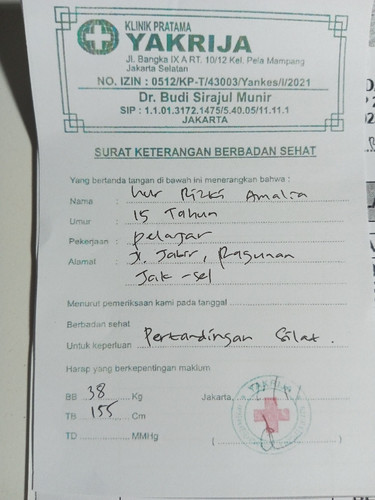 KLINIK PRATAMA
YAKRIJA
Jl. Bangka IX A RT. 10/12 Kel. Pela Mampang
Jakarta Selatan
NO. IZIN : 0512/KP-T/43003/Yankes/I/2021
Dr. Budi Sirajul Munir
SIP : 1.1.01.3172.1475/5.40.05/11.11.1
JAKARTA
SURAT KETERANGAN BERBADAN SEHAT
Yang bertanda tangan di bawah ini menerangkan bahwa :
Nama : Nur Rizki Amalia
Umur : 15 Tahun
Pekerjaan : Pelajar
Alamat : Jl. Jabir, Ragunan
Jak-sel
Menurut pemeriksaan kami pada tanggal
Berbadan sehat
Untuk keperluan Pertandingan Silat.
Harap yang berkepentingan maklum
BB 38 Kg Jakarta,
TB 155 Cm
TD MMHg ( )
YAKRIJA